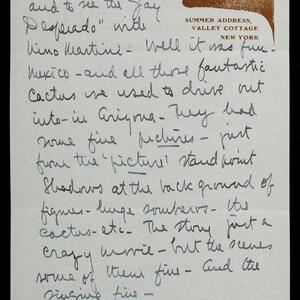 and to see the Gay
SUMMER ADDRESS,
VALLEY COTTAGE
NEW YORK
Desperado" with
Nino Martini - Well it was fine -
Mexico - and all those fantastic
cactus we used to drive out
into - in Arizona - They had
some fine pictures - just
from the 'picture' standpoint
Shadows at the back ground of
figures - huge sombreros - the
cactus - etc - The story just a
crazy movie - but the scenes
some of them fine - And the
singing fine -